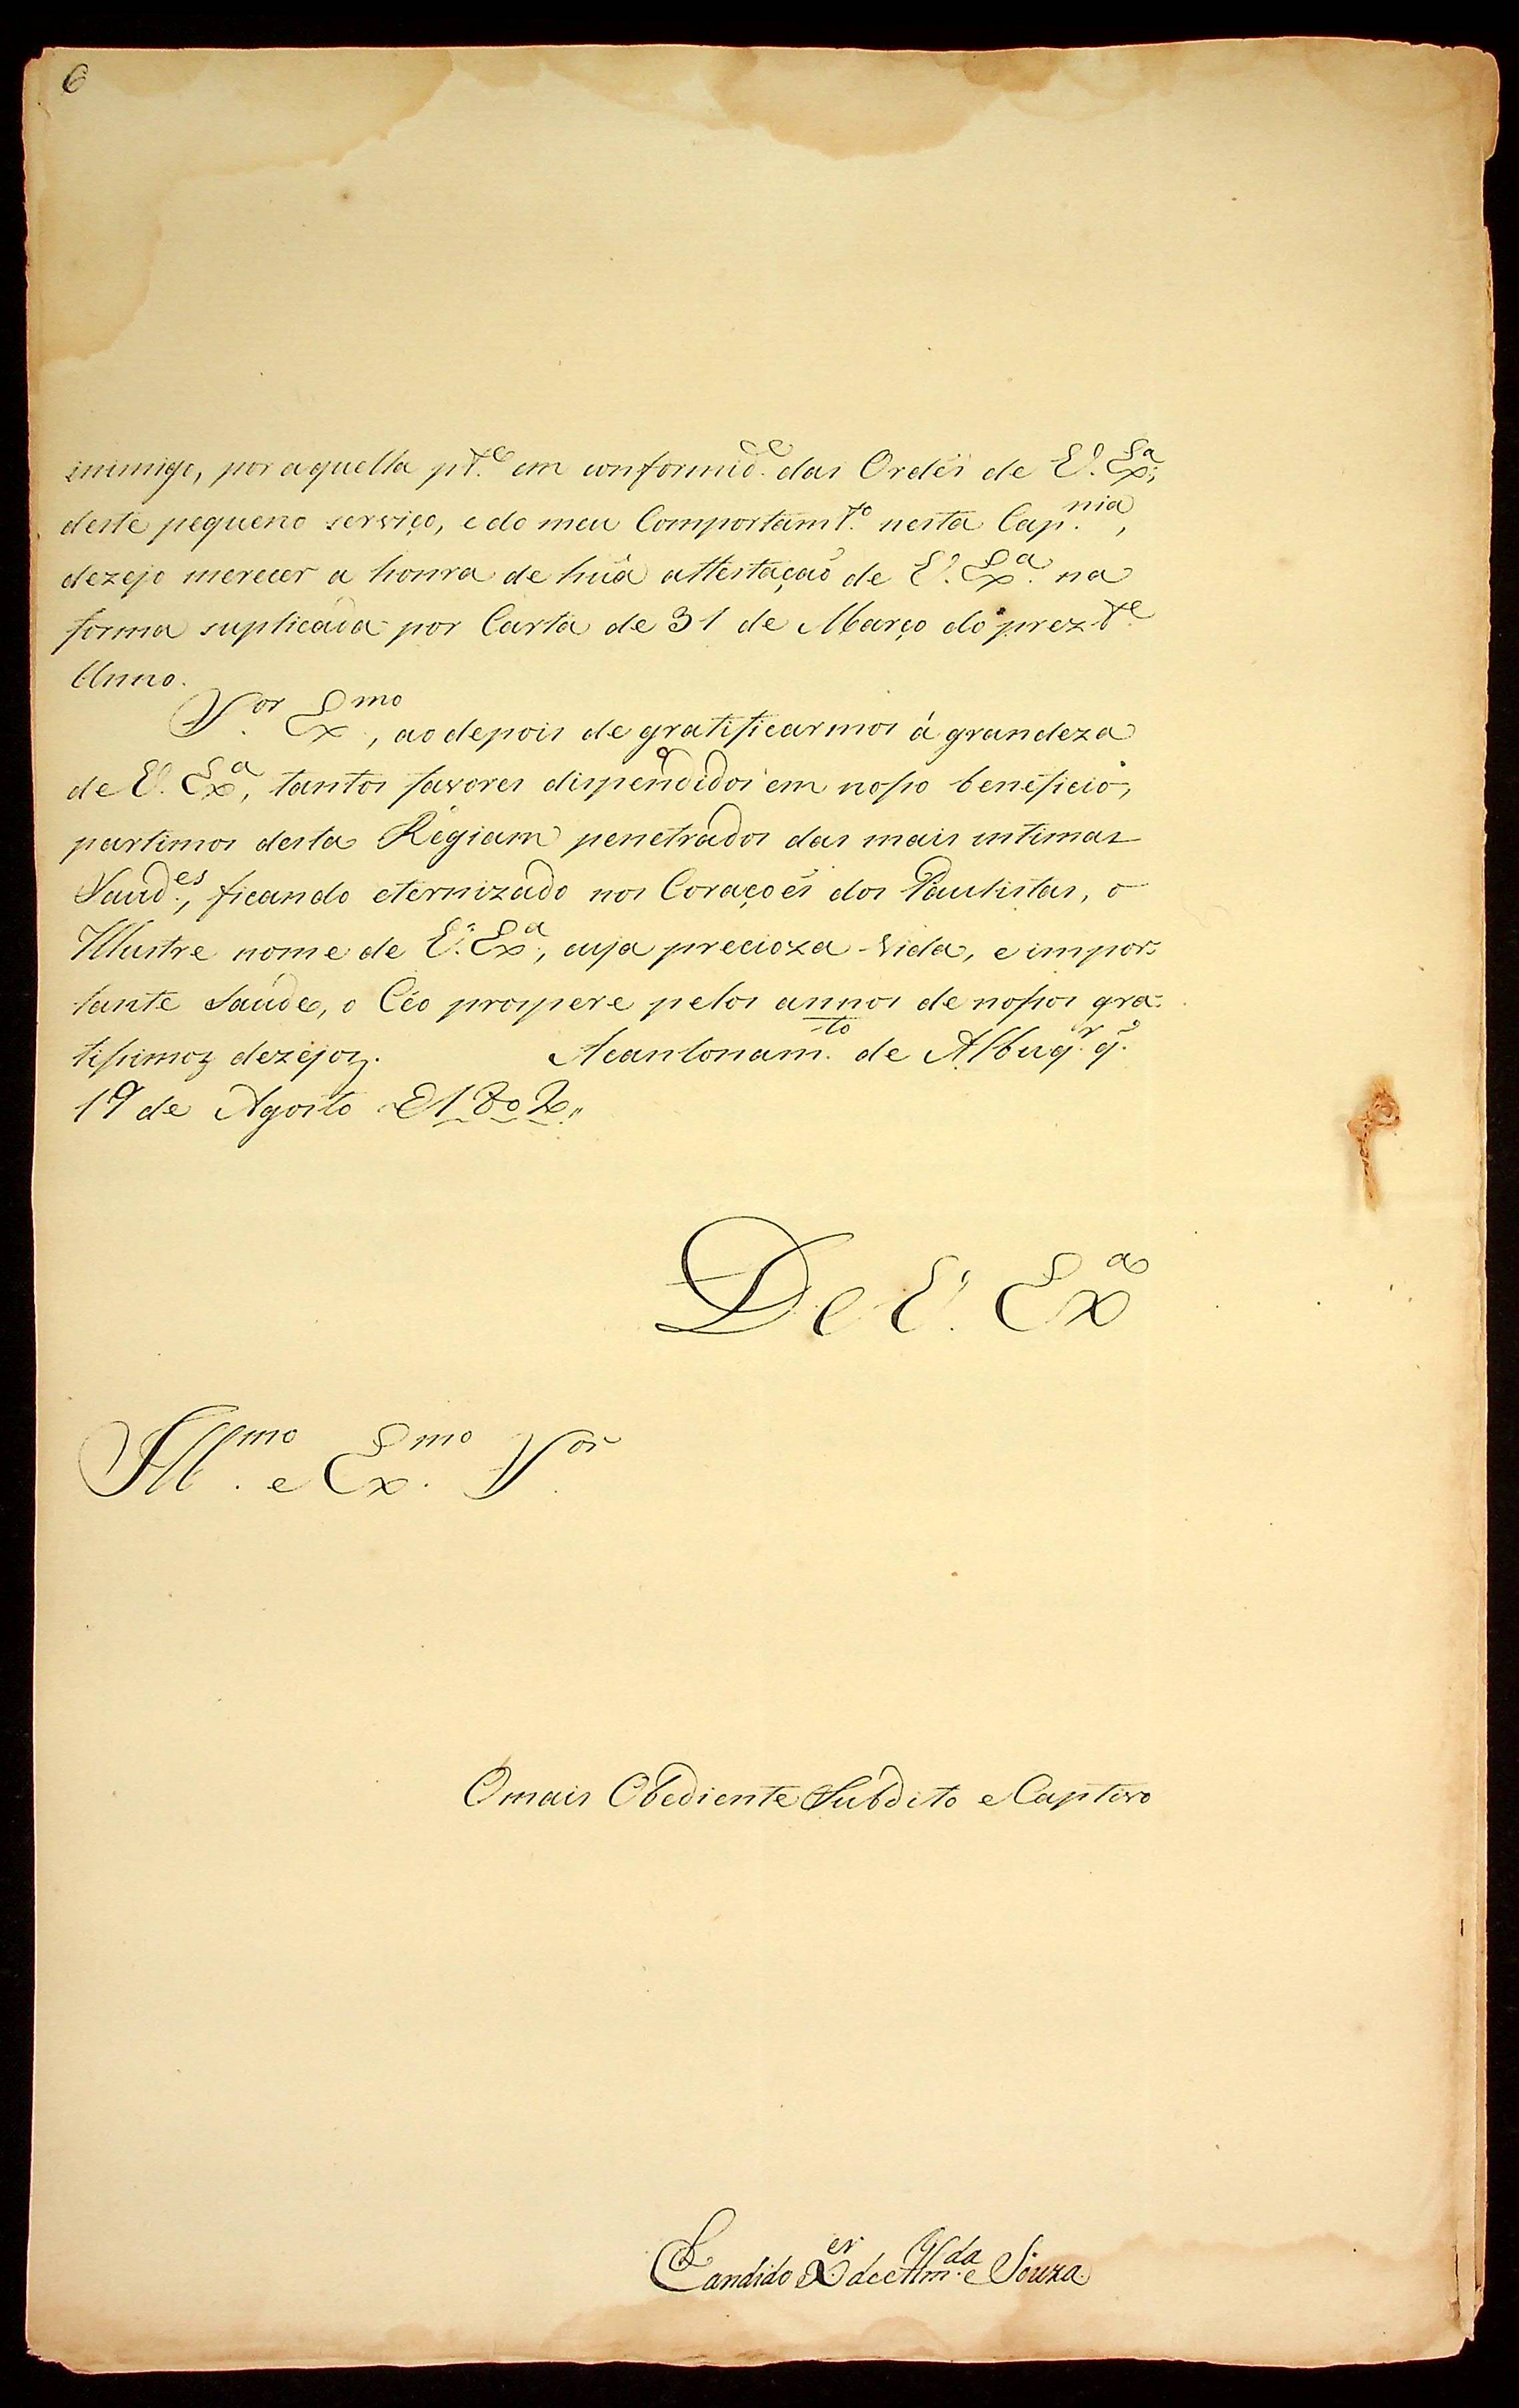 6
inimigo, por aquella pt.e em conformid.e das Ordẽs de V. Ex.a;
deste pequeno serviço, e do meu Comportamt.o nesta Cap.nia,
dezejo merecer a honra de huã attestaçaõ de V. Ex.a na
forma suplicada por Carta de 31 de Março do prezt.e
Anno.
S.or Ex.mo, ao depois de gratificarmos á grandeza
de V. Ex.a, tantos favores dispendidos em nosso beneficio,
partimos desta Regiam penetrados das mais intimas
Saud.es, ficando eternizado nos Coraçoẽs dos Paulistas, o
Illustre nome de V. Ex.a, cuja precioza vida, e impor-
tante Saude, o Céo prospere pelos annos de nossos gra-
tissimoz dezejoz. Acantonam.to de Albuq.r q.e
19 de Agosto D 1802,,
De V. Ex.a
Ill.mo e Ex.mo S.or
O mais Obediente Subdito e Captivo
Candido X.er de Alm.da e Souza.